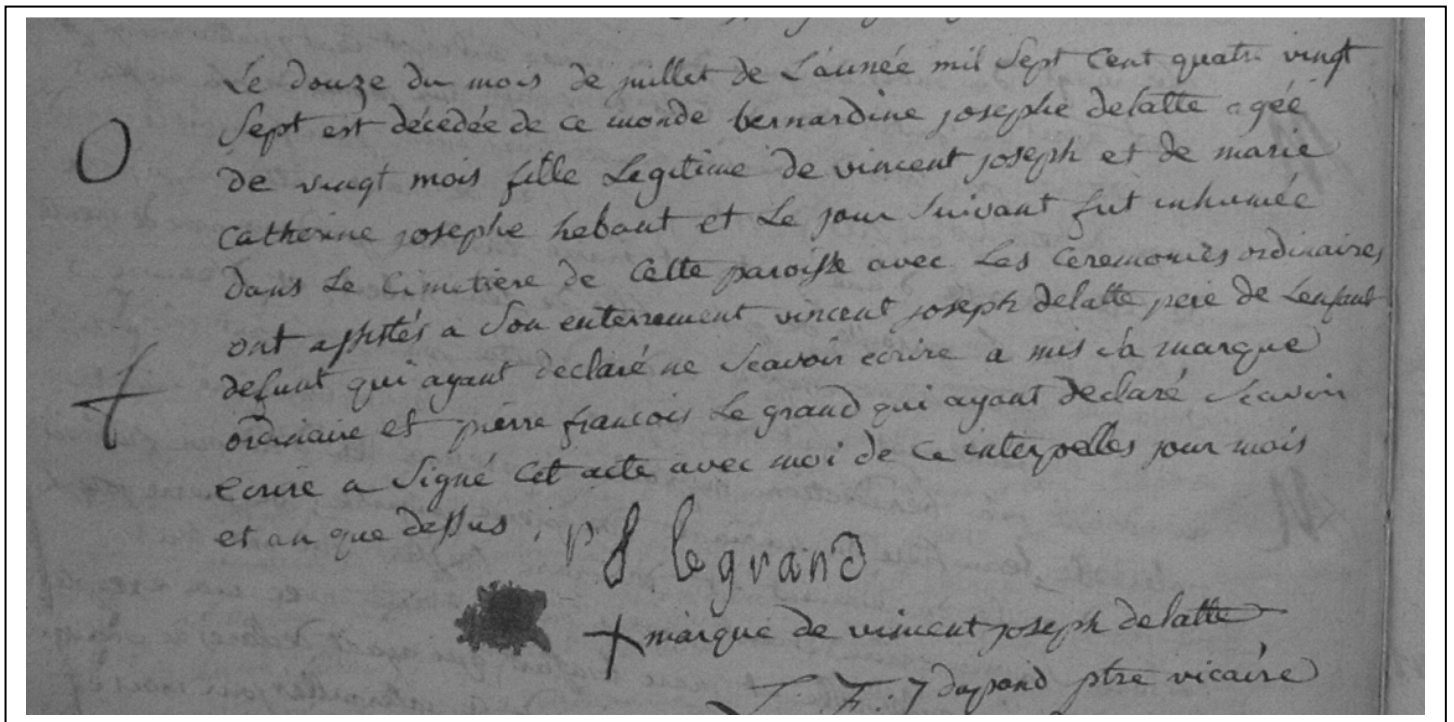 Le douze du mois de juillet de L'année mil sept cent quatre vingt
sept est décédée de ce monde bernardine josephe delatte agée
de vingt mois fille Legitime de vincent joseph et de marie
catherine josephe hebant et Le jour suivant fut inhumée
dans Le cimetière de cette paroisse avec Les ceremonies ordinaires
ont assistés a son enterrement vincent joseph delatte pere de Lenfant
defunt qui ayant declaré ne scavoir ecrire a mis sa marque
ordinaire et pierre francois Le grand qui ayant declaré scavoir
ecrire a signé cet acte avec moi de ce interpelles jour mois
et an que dessus
legrand
marque de vincent joseph delatte
ptre vicaire